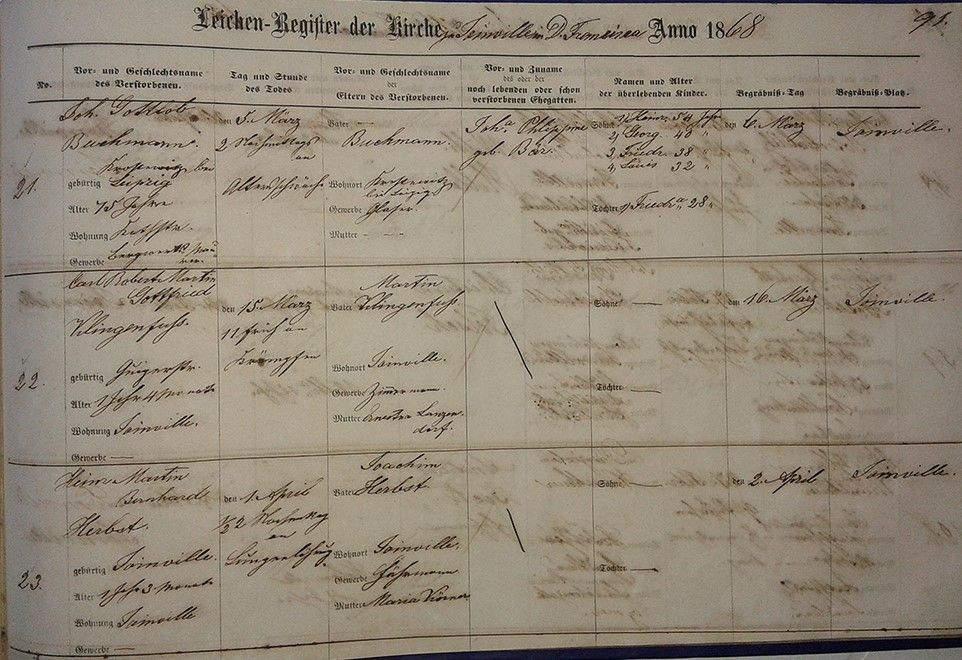 Leichen-Register der Kirche zu Joinville in D. Francisca Anno 1868
91.
No.
Vor- und Geschlechtsname
des Verstorbenen.
Tag und Stunde
des Todes
Vor- und Geschlechtsname
der
Eltern des Verstorbenen.
Vor- und Zuname
des oder der
noch lebenden oder schon
verstorbenen Ehegatten.
Namen und Alter
der überlebenden Kinder.
Begräbniß-Tag
Begräbniß-Platz.
21.
Joh. Gottlob
Buchmann.
gebürtig bei
Leipzig
Alter 75 Jahre
Wohnung
Gewerbe
den 5. März
2 Nachmittags
an
Altersschwäche
Vater —
Buchmann.
Wohnort
bei Leipzig
Gewerbe Glaser.
Mutter - - -
Joh.a Philippine
geb. Bär.
Söhne 1, 54 Jahre
2, Georg 48 "
3, Friedr. 38 "
4, Louis 32 "
Töchter 1, Friedr.a 28 "
den 6. März
Joinville.
22.
Carl Robert Martin
Gottfried
Klingenfuss.
gebürtig
Alter 1 Jahr 4 Monate
Wohnung Joinville.
Gewerbe —
den 15. März
11 früh an
Krämpfen
Martin
Vater Klingenfuss.
Wohnort Joinville.
Gewerbe Zimmermann.
Mutter
Söhne —
Töchter —
den 16. März
Joinville.
23.
Heinr. Martin
Bernhard
Herbst.
gebürtig Joinville.
Alter 1 Jahr 3 Monate
Wohnung Joinville
Gewerbe —
den 1. April
1/2 2 Nachmittag
an
Joachim
Vater Herbst
Wohnort Joinville.
Gewerbe
Mutter Maria
Söhne —
Töchter —
den 2. April
Joinville.